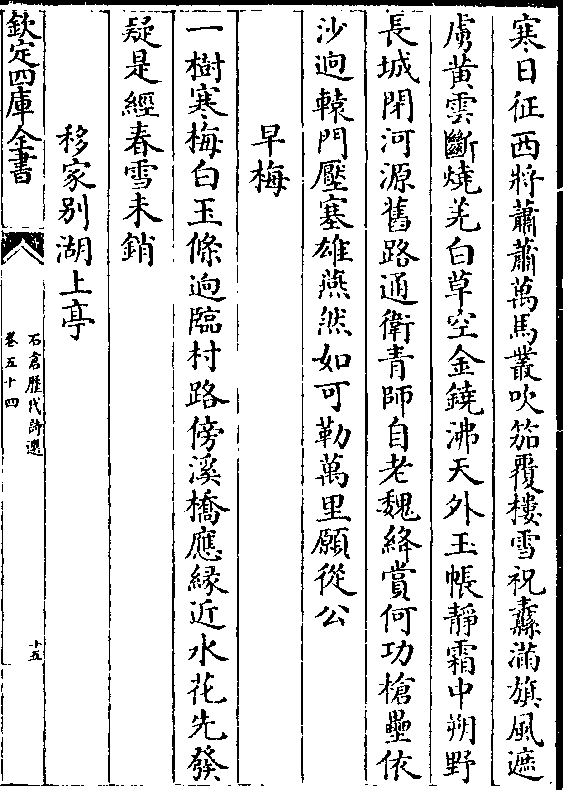 寒日征西將蕭蕭萬馬叢吹笳覆樓雪祝纛滿旗風遮
虜黄雲斷燒羌白草空金鐃沸天外玉帳靜霜中朔野
長城閉河源舊路通衛青師自老魏絳賞何功槍壘依
沙逈轅門壓塞雄燕然如可勒萬里願從公
早梅
一樹寒梅白玉條逈臨村路傍溪橋應縁近水花先發
疑是經春雪未銷
移家别湖上亭
欽定四庫全書
石倉歷代詩選
卷五十四
十五